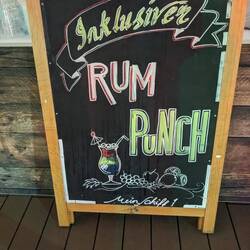 Inklusiver
RUM
PUNCH
Mein Schiff 1